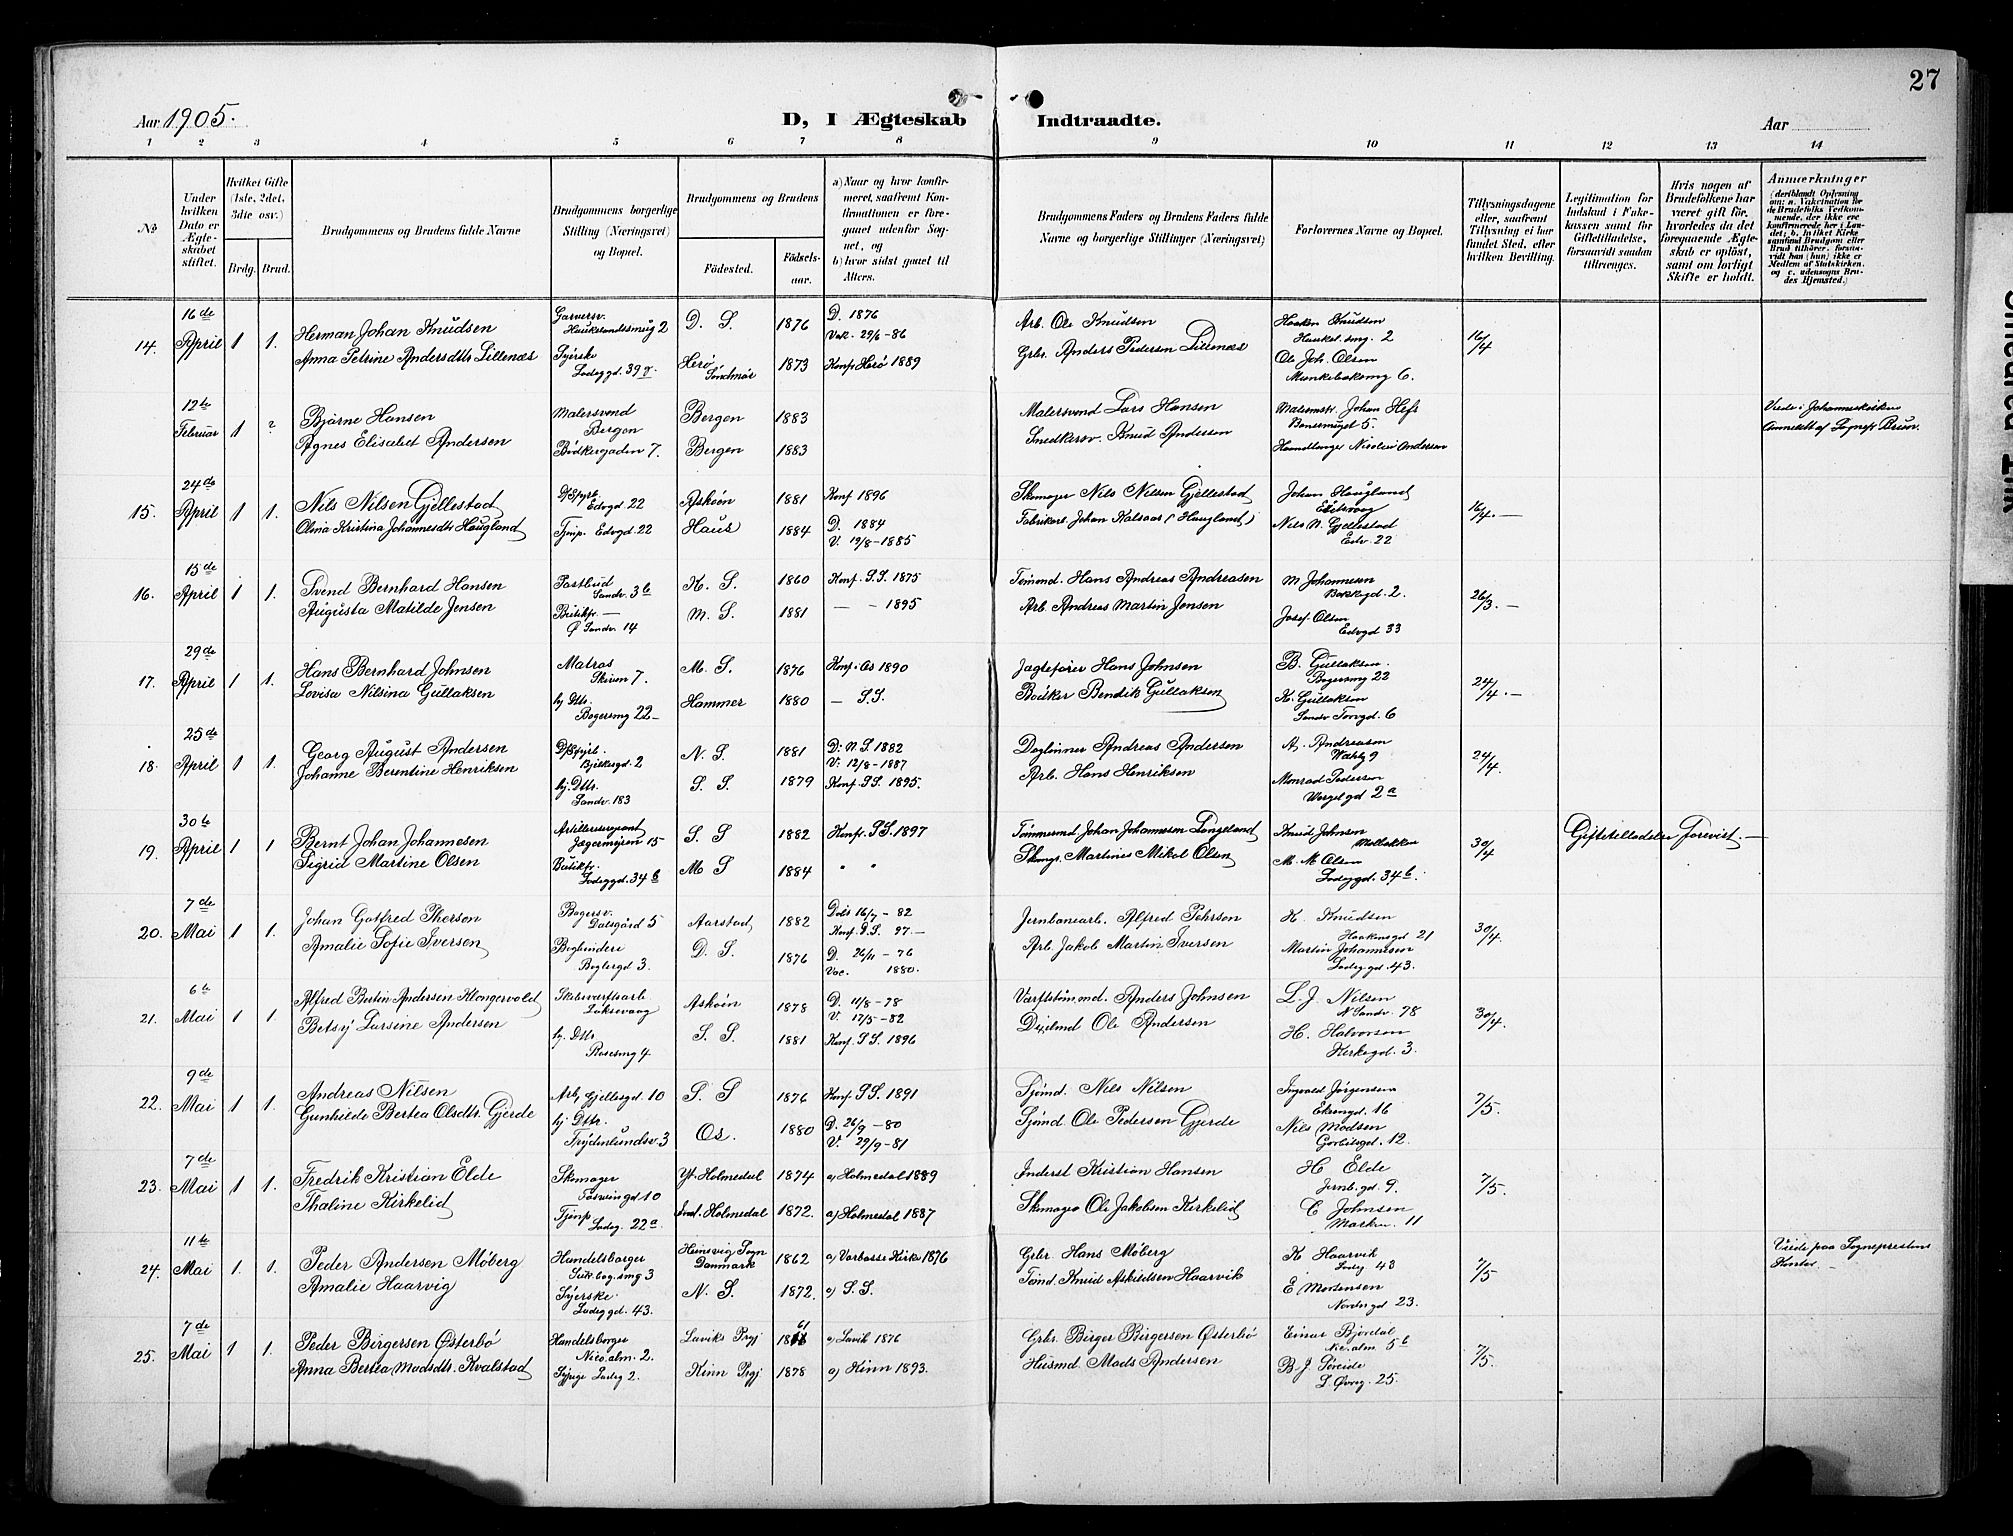 27
Aar 1905.
D, I Ægteskab Indtraadte.
Aar
1 2 3 4 5 6 7 8 9 10 11 12 13 14
№
Under hvilken Dato er Ægteskabet stiftet.
Hvilket Gifte (1ste, 2det, 3die osv.)
Brdg. Brud.
Brudgommens og Brudens fulde Navne
Brudgommens borgerlige Stilling (Næringsvei) og Bopæl.
Brudgommens og Brudens
Fødested.
Fødsels-aar.
a) Naar og hvor konfirmeret, saafremt Konfirmationen er foregaaet udenfor Sognet, og
b) hvor sidst gaaet til Alters.
Brudgommens Faders og Brudens Faders fulde Navne og borgerlige Stillinger (Næringsvei)
Forlovernes Navne og Bopæl.
Tillysningsdagene eller, saafremt Tillysning ei har fundet Sted, efter hvilken Bevilling.
Legitimation for Indskud i Enkekassen samt for Giftetilladelse, forsaavidt saadan tiltrænges.
Hvis nogen af Brudefolkene har været gift før, hvorledes da det foregaaende Ægteskab er opløst, samt om lovligt Skifte er holdt.
Anmærkninger
(deriblandt Oplysning om: a. Vakcination for de Brudefolks Vedkommende, der ikke ere konfirmerede her i Landet; b. hvilket Kirkesamfund Brudgom eller Brud tilhører, forsaavidt han (hun) ikke er Medlem af Statskirken, og c. udensogns Brudes Hjemsted.)
14. 16de April 1 1. Herman Johan Knudsen Garversv. Haukelandsmug 2 D. S. 1876 D. 1876 Vak. 29/6 - 86 Arb. Ole Knudsen Haakon Knudsen Haukel. smg. 2 16/4
Anna Petrine Andersdtr. Lillenæs Syerske Ladeggd. 39 Herø Søndmør 1873 Konf. Herø 1889 Grbr. Anders Pedersen Lillenæs Ole Joh. Olsen Munkebaksmg 6.
12te Februar 1 ? Bjarne Hansen Malersvend Bergen Bergen 1883 Malersvend Lars Hansen Malermstr. Johan Hefs 5.
Agnes Elisabet Andersen Bødkergaden 7. Bergen 1883 Snedkersv. Knud Andersen Nicolai Andersen
Viede i Johanneskirken Anmeldt af Sognepr. Bruun
15. 24de April 1 1. Nils Nilsen Gjellestad Edvgd 22 Askøen 1881 Konf 1896 Skomager Nils Nilsen Gjellestad Johan Haugland 16/4. —
Olina Kristina Johannesdtr Haugland Tjnp. Edvgd. 22 Haus 1884 D. 1884 V. 19/8 - 1885 Fabrikarb. Johan Kalsaas (Haugland) Nils N. Gjellestad Edv. 22
16. 15de April 1 1. Svend Bernhard Hansen Postbud Sandv. 36 K. S. 1860 Konf. S.S. 1875 Tømmd. Hans Andreas Andreasen M. Johannesen Bakkegd. 2. 26/3. —
Augusta Matilde Jensen Butikfr. — Ø Sandv. 14 M. S. 1881 — - 1895 Arb. Andreas Martin Jensen Josef Olsen Edvgd 33
17. 29de April 1 1. Hans Bernhard Johnsen Matros Skiven 7. M. S. 1876 Konf. Os 1890 Jagtefører Hans Johnsen B. Gullaksen Bøgersmg 22 24/4. —
Lovisa Nilsina Gullaksen hj. Dttr. Bøgersmg 22 — Hammer 1880 — S.S. Bødker Bendik Gullaksen K. Gullaksen Sandv Torvgd. 6
18. 25de April 1 1. Georg August Andersen 2 N. S. 1881 D. N. S. 1882 V. 12/8 - 1887 Daglønner Andreas Andersen A. Andreasen 9 24/4.
Johanne Berentine Henriksen hj. Dttr. Sandv. 183 S. S. 1879 Konf. S.S. 1895. Arb. Hans Henriksen Monrad Pedersen 2a
19. 30te April 1 1 Bernt Johan Johannesen Artillerisergeant Jægermyren 15 S. S 1882 Konf. S.S. 1897 Tømmermd Johan Johannesen Langeland Knud Johnsen Møllebakken 30/4 Giftetilladelse Forevist. —
Sigrid Martine Olsen Butikfr. Ladeggd. 34 b M S 1884 " " Skomgr. Martines Mikal Olsen M. M. Olsen Ladeggd. 34 b.
20. 7de Mai 1 1. Johan Gotfred Pherson Bagersv. Dalsgård 5 Aarstad 1882 Døbs 16/7 - 82 Konf. S.S. 97. — Jernbanearb. Alfred Pehrson K. Knudsen Haakensgd 21 30/4.
Amalie Sofie Iversen Bogbinderi Baglergd 3. D. S. 1876 D. 26/11 - 76 Vac. 1880. Arb. Jakob Martin Iversen Martin Johannesen Ladeggd. 43.
21. 6te Mai 1 1. Alfred Bertin Andersen Klongervold Skibsværftsarb. Laksevaag Askøen 1878 D. 11/8 - 78 V. 17/5 - 82 Værftstømmd. Anders Johnsen L. J. Nilsen N Sandv. 78 30/4.
Betsy Larsine Andersen hj. Dttr Rosesmg 4 S. S 1881 Konf. S.S. 1896 Ole Andersen H. Halvorsen Kirkegd. 3.
22. 9de Mai 1 1. Andreas Nilsen Arb. Gjellesgd. 10 S. S 1876 Konf. S.S 1891 Sjømd. Nils Nilsen Ingvald Jørgensen Ekrengd. 16 7/5.
Gunhilde Bertea Olsdtr. Gjerde hj. Dttr. Frydenlundsv. 3 Os. 1880 D. 26/9 - 80 V. 29/9 - 81 Sjømd Ole Pedersen Gjerde Nils Madsen 12.
23. 7de Mai 1 1. Fredrik Kristian Elde Skomager 10 Yt. Holmedal 1874 a) Holmedal 1889 Inderst Kristian Hansen H. Elde Jernb. gd. 9. 7/5.
Thaline Kirkelid Tjenp. Ladeg. 22 a Ind. Holmedal 1872. a) Holmedal 1887 Skomager Ole Jakobsen Kirkelid C Johnsen Marken 11
24. 11te Mai 1. 1. Peder Andersen Møberg Handelsborger smg 3 Heinsvig Sogn Danmark 1862 a) Vorbasse Kirk 1876 Grbr. Hans Møberg K. Haarvik Ladeg. 43 7/5
Amalie Haarvig Syerske Ladeggd. 43. N. S. 1872. a) S. S. Tømd. Knud Askildsen Haarvik E. Mortensen Nordregd 23.
Viede paa Sogneprestens Kontor. —
25. 7de Mai 1 1. Peder Birgersen Østerbø Handelsborger Nico. alm. 2. Laviks Prgj 1861 a) Lavik 1876 Grbr. Birger Birgersen Østerbø Einar Bjordal Nic. alm. 5 b 7/5.
Anna Bertea Madsdtr. Kvalstad Sypige Ladeg 2. Kinn Prgj 1878 a) Kinn 1893. Husmd Mads Andersen B. J. Søreide L. Øvreg. 25.